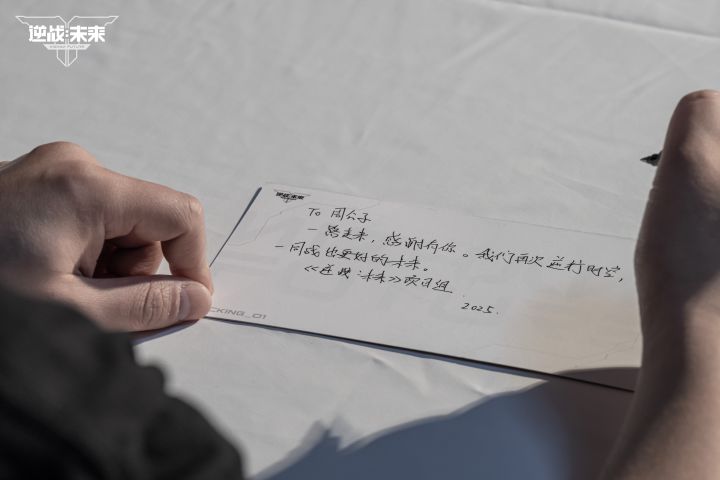 逆战:未来
逆战:未来
To 周公子
一路走来，感谢有你。我们再次逆行时空，
一同战出更好的未来。
《逆战:未来》项目组
2025.
CKING_01